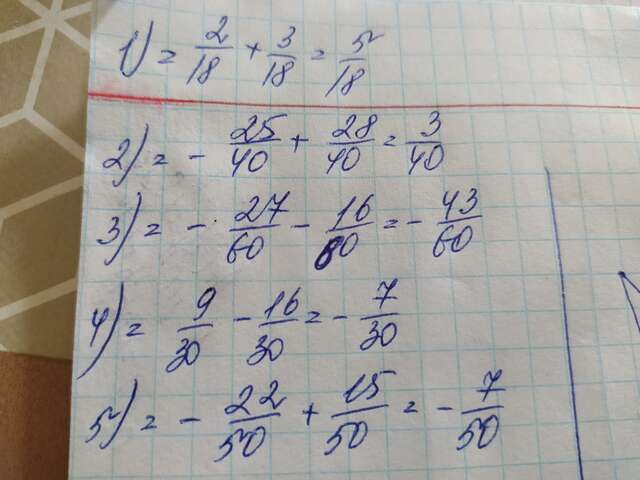 1) = 2/18 + 3/18 = 5/18
2) = - 25/40 + 28/40 = 3/40
3) = - 27/60 - 16/60 = - 43/60
4) = 9/30 - 16/30 = - 7/30
5) = - 22/50 + 15/50 = - 7/50